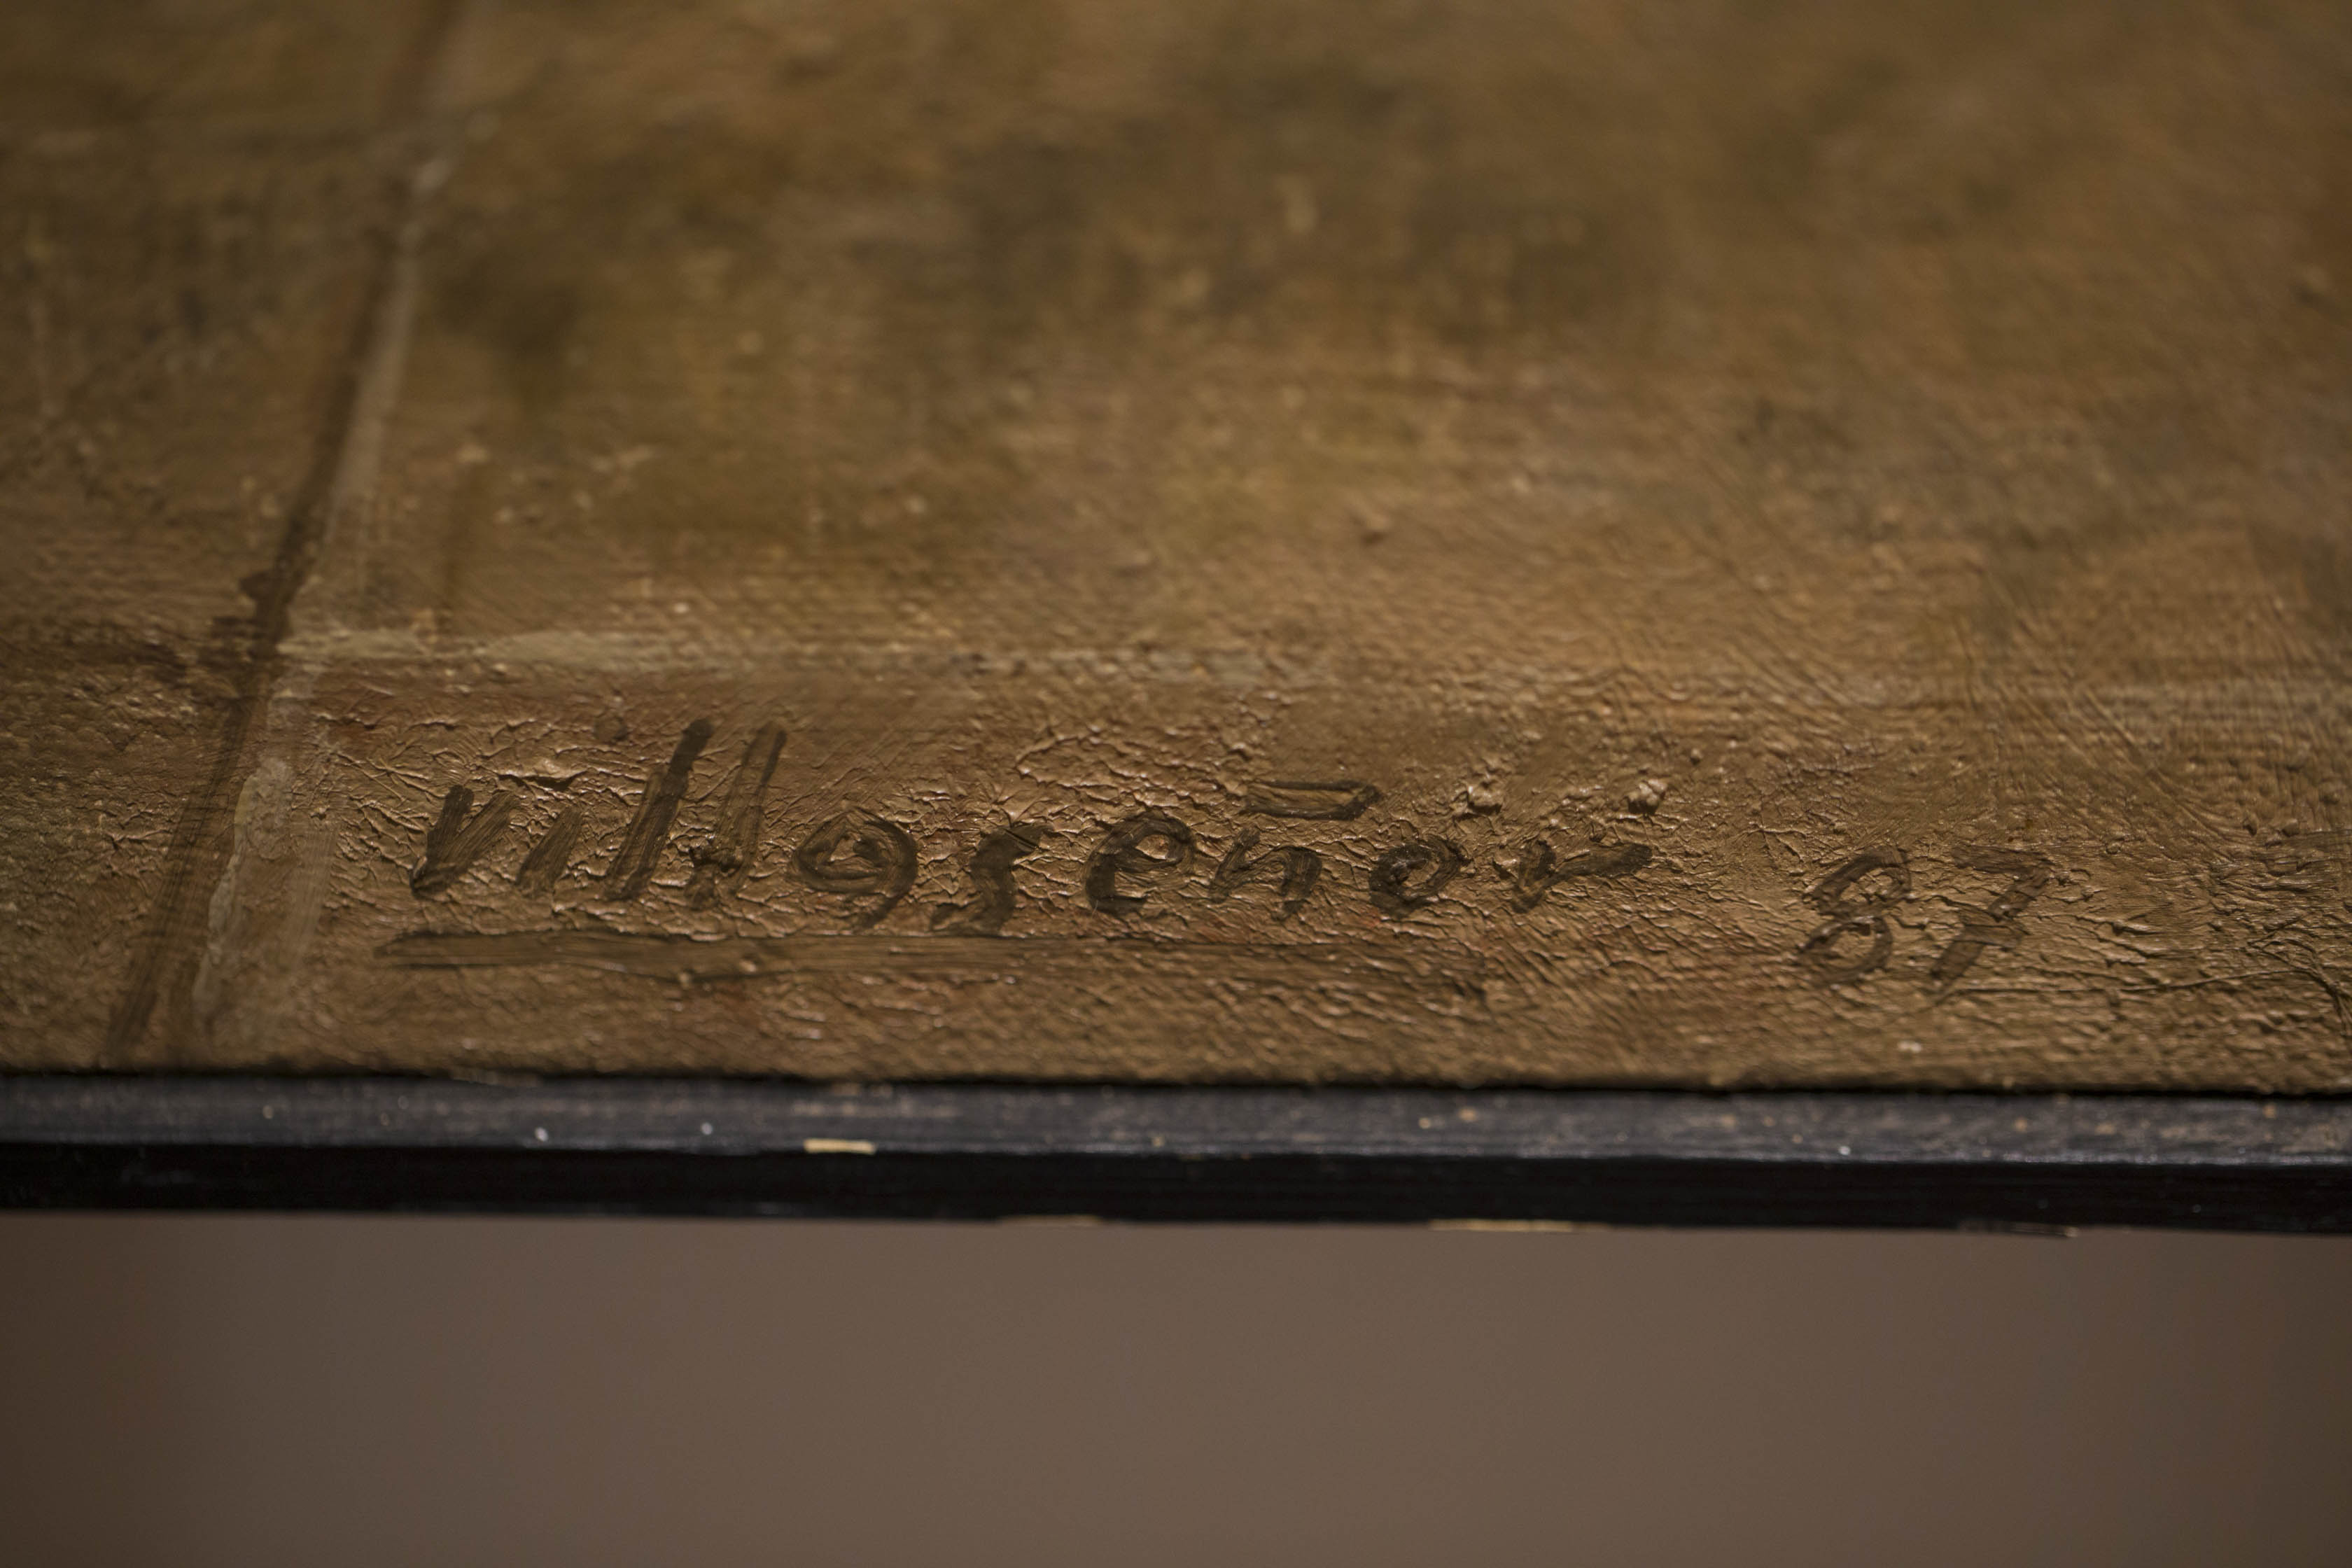 villaseñor 87